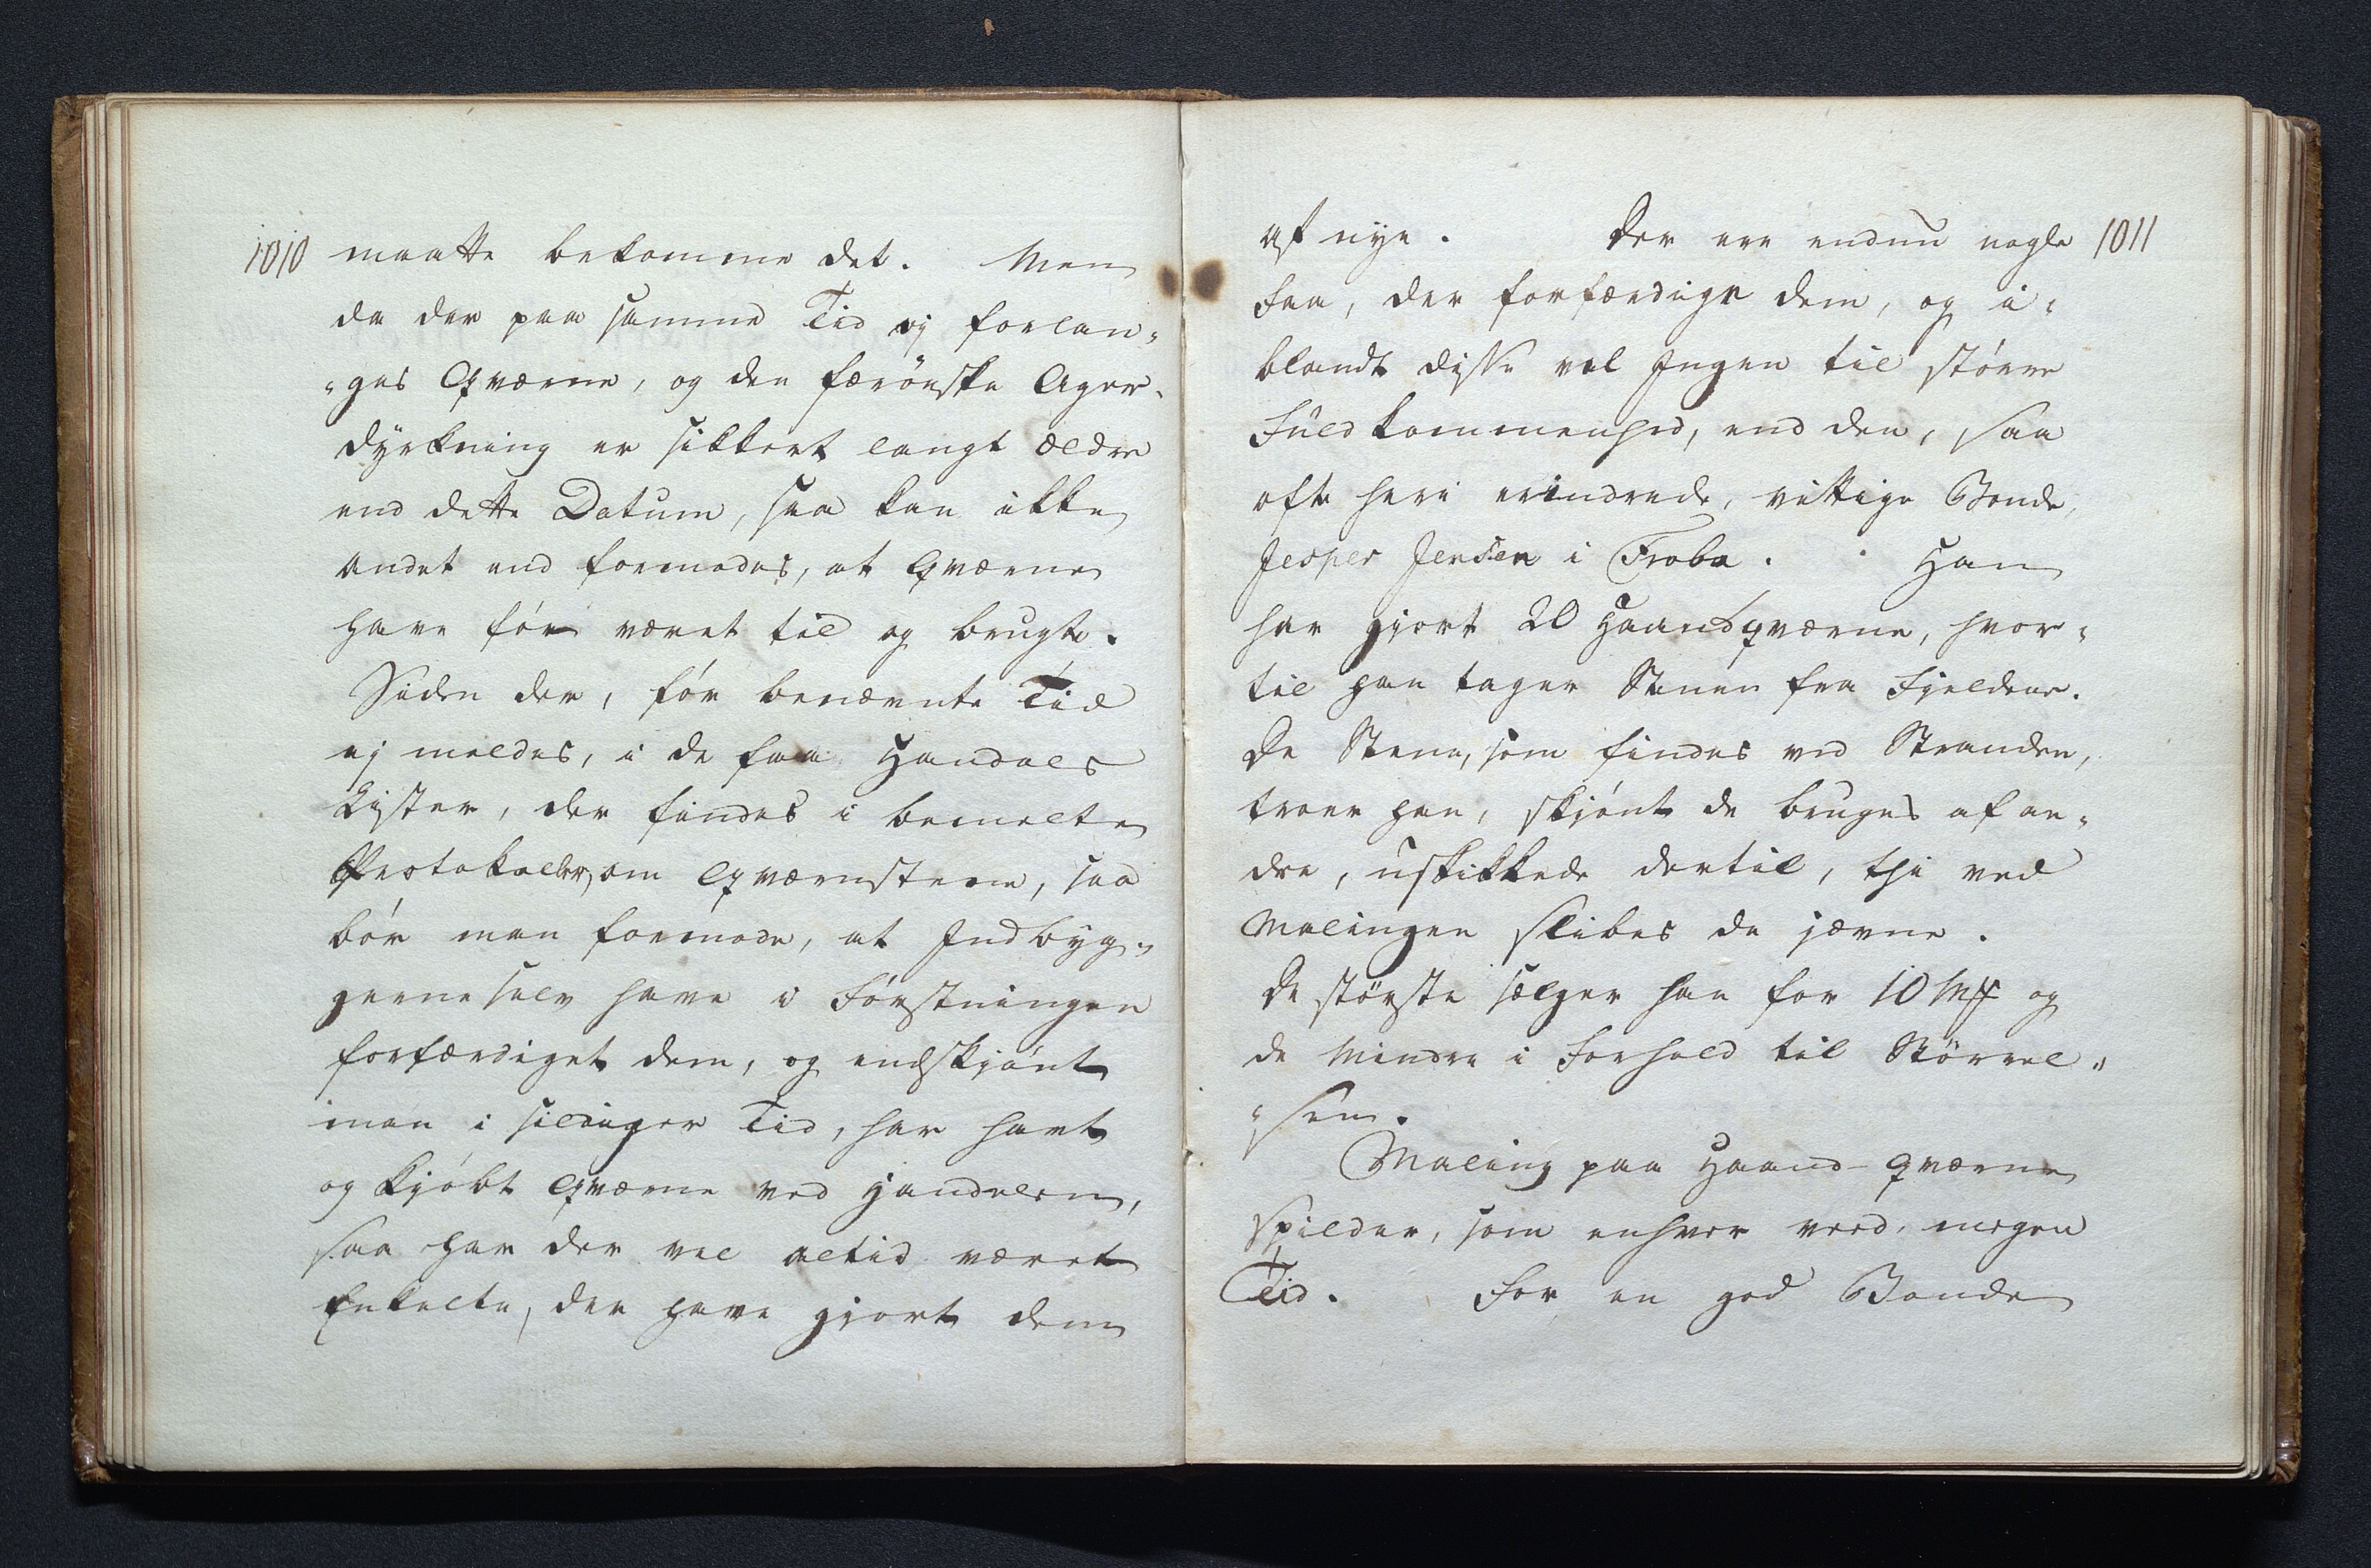 1010
maatte bekomme det. Men
da der paa samme Tid ej forlan¬
¬ges Qværne, og den færöeske Ager¬
dyrkning er sikkert langt ældre
end dette Datum, saa kan ikke
andet end formodes, at Qværne
have för været til og brugte.
Siden der, för benævnte Tid
ej meldes, i de faa Handels
Lister, der findes i bemelte
Protokoller, om Qværnstene, saa
bör man formode, at Indbyg¬
gerne selv have i Förstningen
forfærdiget dem, og endskjönt
man i sildiger Tid, har havt
og kjöbt Qværne ved Handelen,
saa har der vel altid været
Enkelte, der have gjort dem
1011
af nye. Der ere endnu nogle
Faa, der forfærdige dem, og i¬
blandt disse vel Ingen til större
Fuldkommenhed, end den, saa
ofte heri erindrede, vittige Bonde,
Jesper Jensen i Froba. Han
har gjort 20 Haandqværne, hvor¬
til han tager Stenen fra Fjeldene.
De Stene, som findes ved Stranden,
troer han, skjönt de bruges af an¬
dre, uskikkede dertil, thi ved
Malingen slibes de jævne.
De störste sælger han for 10 Mk og
de Mindre i Forhold til Störrel¬
¬sen.
Maling paa Haand-Qværne
spilder, som enhver veed, megen
Tid. For en god Bonde